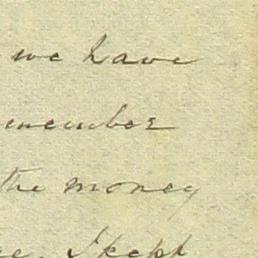 we have
emember
the money
I kept